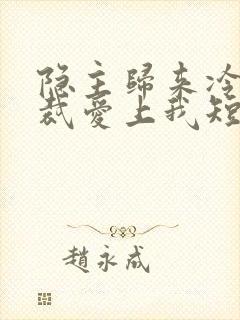 隐主歸来冷
裁愛上我短
趙永成